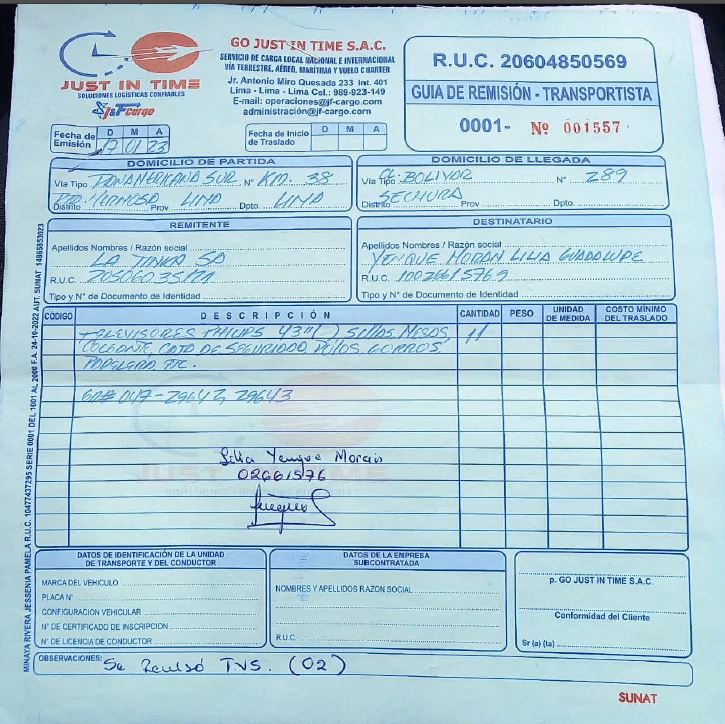 JUST IN TIME
SOLUCIONES LOGÍSTICAS CONFIABLES
J&F Cargo
GO JUST IN TIME S.A.C.
SERVICIO DE CARGA LOCAL NACIONAL E INTERNACIONAL
VIA TERRESTRE, AÉREO, MARITIMA Y VUELO CHARTER
Jr. Antonio Miro Quesada 233 Int. 401
Lima - Lima - Lima Cel.: 989-923-149
E-mail: operaciones@jf-cargo.com
administración@jf-cargo.com
R.U.C. 20604850569
GUIA DE REMISIÓN - TRANSPORTISTA
0001- Nº 001557
Fecha de Emisión D M A
17 01 23
Fecha de Inicio de Traslado D M A
DOMICILIO DE PARTIDA
Vía Tipo PANAMERICANA SUR N° KM. 38
Distrito HERMOSA Prov LIMA Dpto. LIMA
DOMICILIO DE LLEGADA
Vía Tipo CL. BOLIVAR N° 289
Distrito SECHURA Prov. Dpto.
REMITENTE
Apellidos Nombres / Razón social
LA TINKA SA
R.U.C.
Tipo y N° de Documento de Identidad
DESTINATARIO
Apellidos Nombres / Razón social
YENQUE MORAN LILIA GUADALUPE
R.U.C. 10026615769
Tipo y N° de Documento de Identidad
CÓDIGO DESCRIPCIÓN CANTIDAD PESO UNIDAD DE MEDIDA COSTO MÍNIMO DEL TRASLADO
TELEVISORES PHILIPS 43" SILLAS MESAS, 11
DE SEGURIDAD POLOS GORROS
PAPELERA ETC.
GR# 047-29642, 29643
Lilia Yenque Moran
02661576
DATOS DE IDENTIFICACIÓN DE LA UNIDAD
DE TRANSPORTE Y DEL CONDUCTOR
MARCA DEL VEHICULO
PLACA N°
CONFIGURACIÓN VEHICULAR
N° DE CERTIFICADO DE INSCRIPCION
N° DE LICENCIA DE CONDUCTOR
DATOS DE LA EMPRESA
SUBCONTRATADA
NOMBRES Y APELLIDOS RAZON SOCIAL
R.U.C.
p. GO JUST IN TIME S.A.C.
Conformidad del Cliente
Sr (a) (ta)
OBSERVACIONES: Se Revisó TVS. (02)
SUNAT
MINAYA RIVERA JESSENIA PAMELA R.U.C. 10477437295 SERIE 0001 DEL 1001 AL 2000 F.A. 24-10-2022 AUT. SUNAT 14865853023